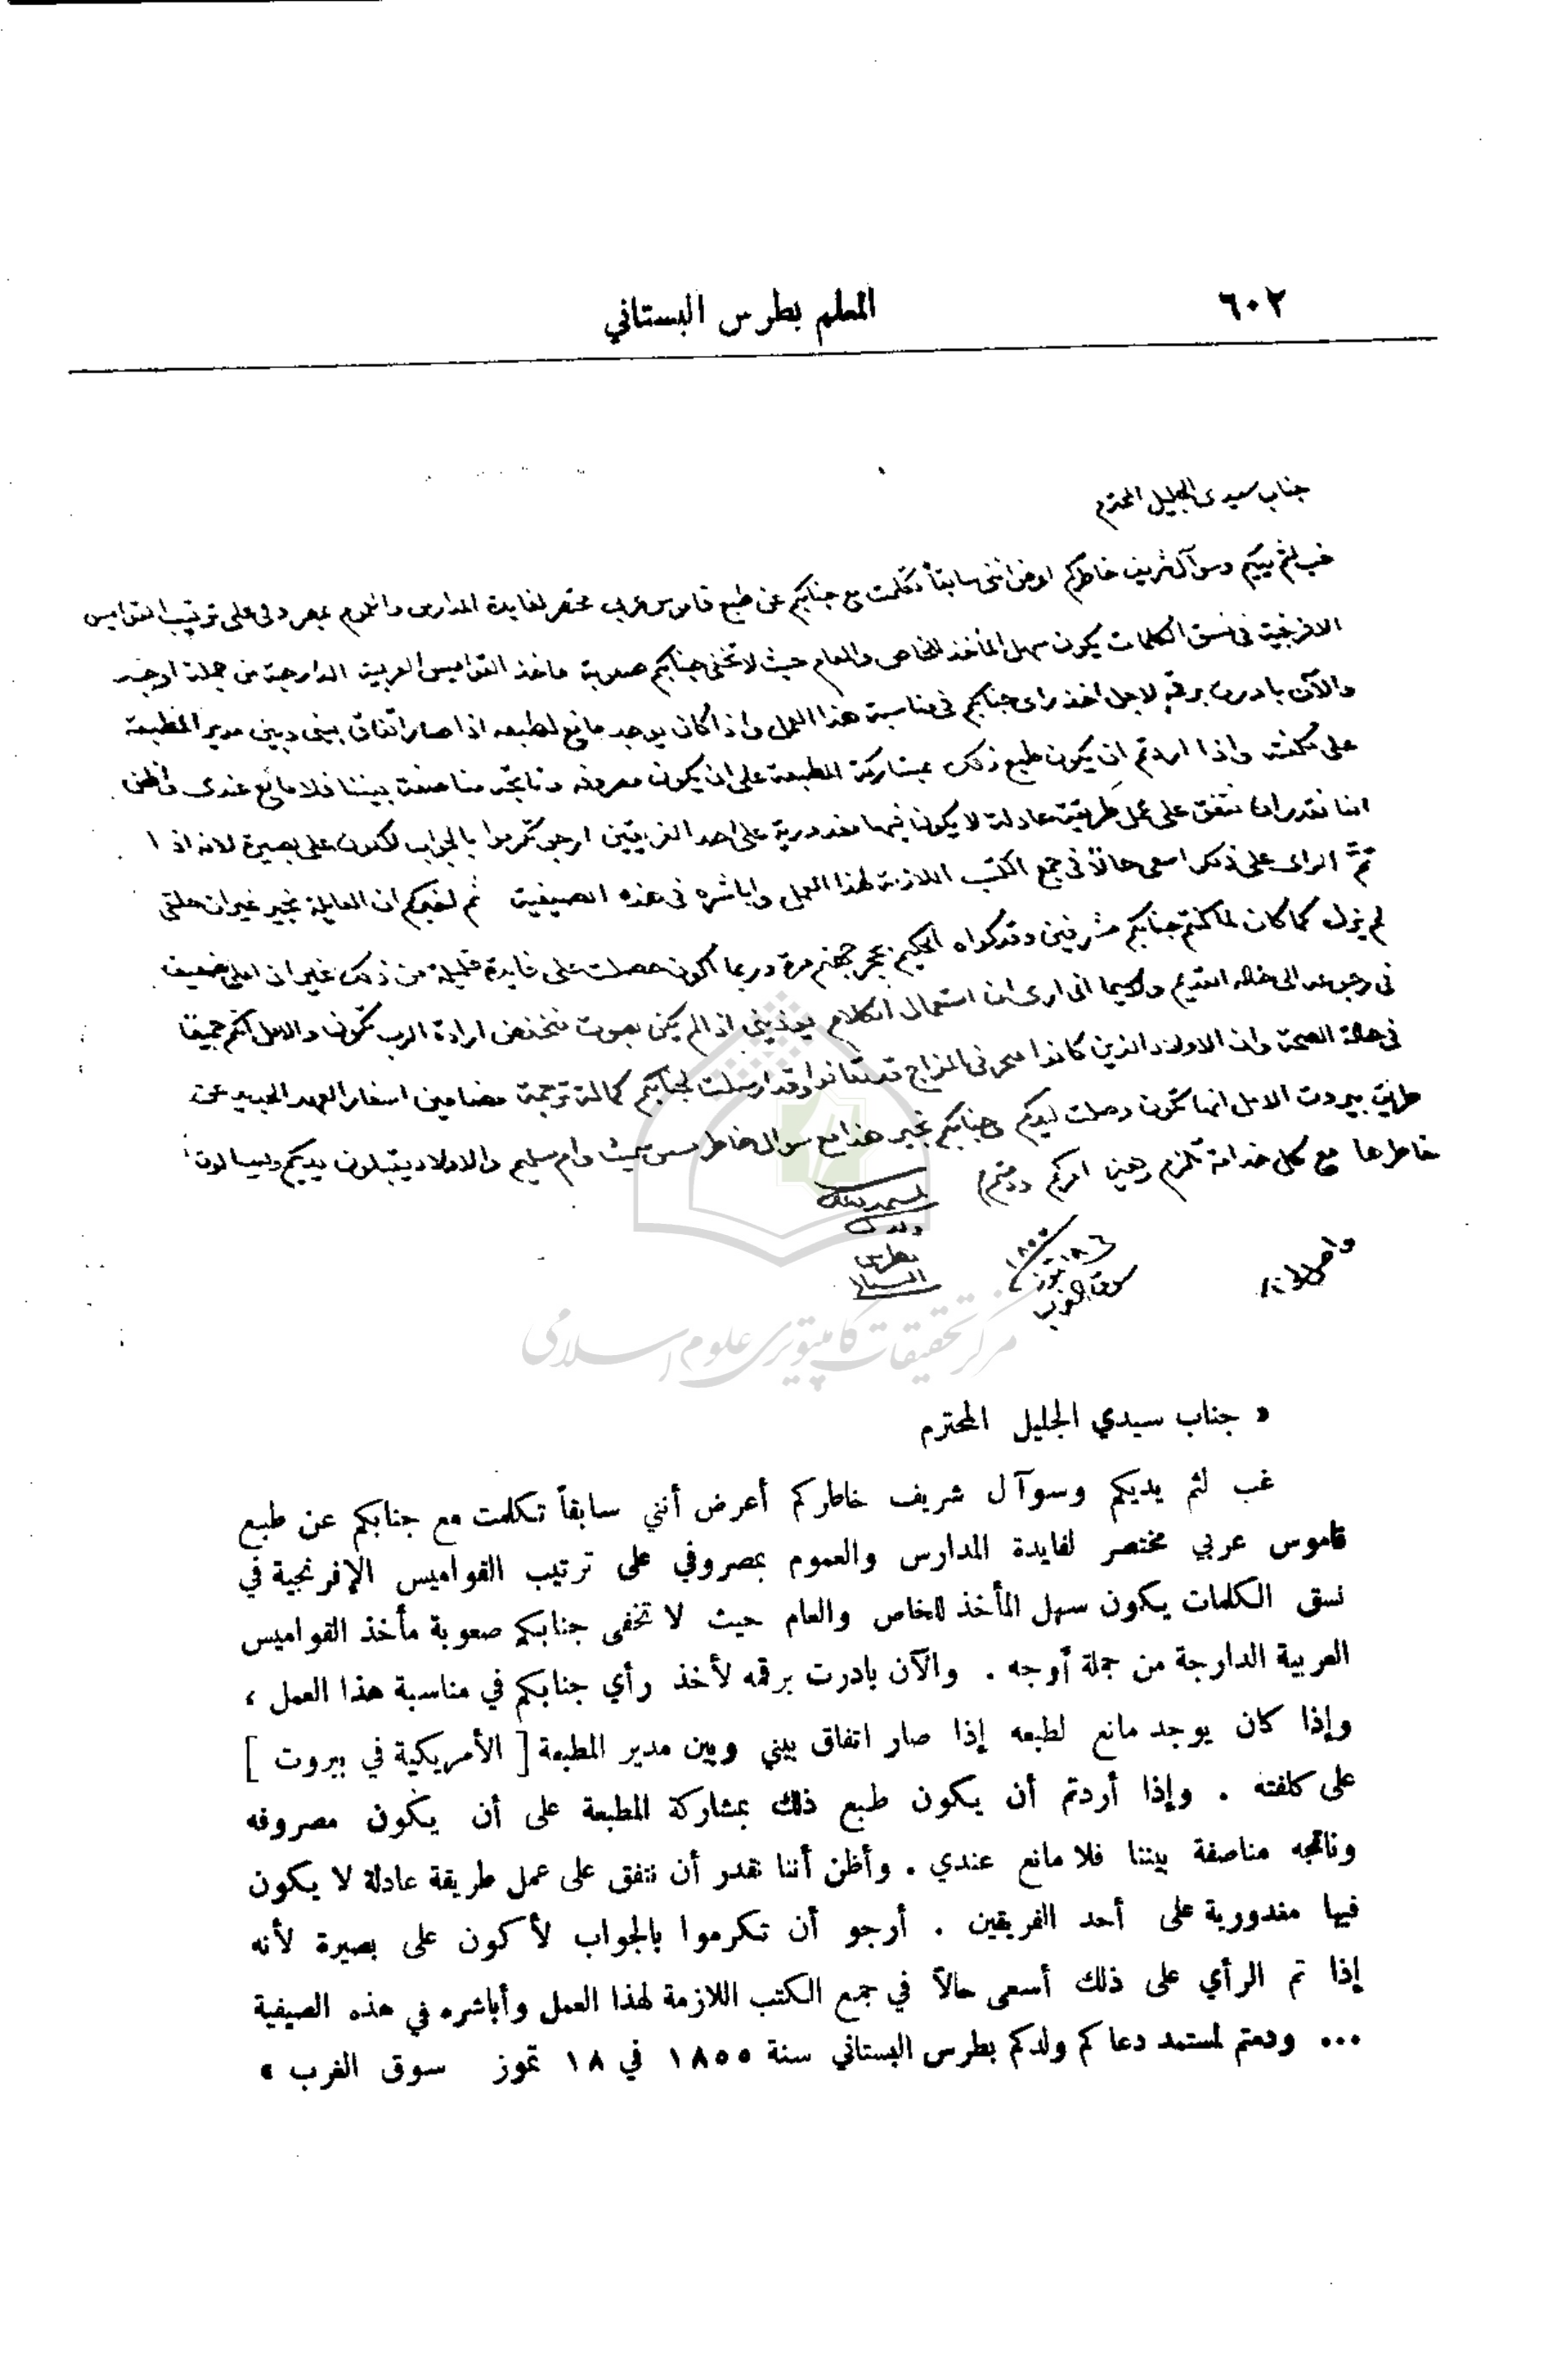 ٦٠٢
المعلم بطرس البستاني
جناب سيدى الجليل المحترم
غب لثم يديكم وسوآل شريف خاطركم اعرض انني سابقاً تكلمت مع جنابكم عن طبع قاموس عربي مختصر لفايدة المدارس والعموم بمصروفي على ترتيب القواميس
الافرنجية في نسق الكلمات يكون سهل المأخذ للخاص والعام حيث لا تخفى جنابكم صعوبة ماخذ القواميس العربية الدارجة من جملة اوجه
والآن بادرت برقمه لاجل اخذ راى جنابكم في مناسبة هذا العمل واذا كان يوجد مانع لطبعه اذا صار اتفاق بيني وبين مدير المطبعة
على كلفته واذا اردتم ان يكون طبع ذلك بمشاركة المطبعة على ان يكون مصروفه وناتجه مناصفة بيننا فلا مانع عندى واظن
اننا نقدر ان نتفق على عمل طريقة عادلة لا يكون فيها مغدورية على احد الفريقين ارجو تكرموا بالجواب لاكون على بصيرة لانه اذا
تمَّ الراى على ذلك اسعى حالاً في جمع الكتب اللازمة لهذا العمل واباشره في هذه الصيفية ثم اخبركم ان العايلة بخير غير ان حلقي
لم يزل كما كان لما كنتم جنابكم مشرفين وقد كواه الحكيم بحجر جهنم مرة وربما اكون حصلت على فايدة قليلة من ذلك غير ان املي ضعيف
في رجوعه الى حاله القديم ولاسيما اني ارى ان استعمال الكلام يوذيني اذا لم يكن بصوت منخفض ارادة الرب تكون والامل انكم جميعًا
في حالة الصحة وان الاولاد الذين كانوا في المزاج قد تعافوا وقد ارسلت لجنابكم كمالة ترجمة مضامين اسفار العهد الجديد عن
طريق بيروت الامل انها تكون وصلت ليدكم وجنابكم بخير هذا مع سوال خاطر وام سليم والاولاد يقبلون يديكم ويسالون
خاطرها مع كل خدامة تلزم رهين امركم ودمتم
لمستمد دعاكم
ولدكم
بطرس
البستاني
١٨٥٥
في ١٨ تموز
سوق الغرب
« جناب سيدي الجليل المحترم
غب لثم يديكم وسوآل شريف خاطركم أعرض أنني سابقاً تكلمت مع جنابكم عن طبع
قاموس عربي مختصر لفايدة المدارس والعموم بمصروفي على ترتيب القواميس الإفرنجية في
نسق الكلمات يكون سهل المأخذ للخاص والعام حيث لا تخفى جنابكم صعوبة مأخذ القواميس
العربية الدارجة من جملة أوجه . والآن بادرت برقمه لأخذ رأي جنابكم في مناسبة هذا العمل ،
وإذا كان يوجد مانع لطبعه إذا صار اتفاق بيني وبين مدير المطبعة [ الأمريكية في بيروت ]
على كلفته . وإذا أردتم أن يكون طبع ذلك بمشاركة المطبعة على أن يكون مصروفه
وناتجه مناصفة بيننا فلا مانع عندي . وأظن أننا نقدر أن نتفق على عمل طريقة عادلة لا يكون
فيها مغدورية على أحد الفريقين . أرجو أن تكرموا بالجواب لأكون على بصيرة لأنه
إذا تم الرأي على ذلك أسعى حالاً في جمع الكتب اللازمة لهذا العمل وأباشره في هذه الصيفية
... ودمتم لمستمد دعاكم ولدكم بطرس البستاني سنة ١٨٥٥ في ١٨ تموز سوق الغرب »
مركز تحقيقات كامپيوترى علوم اسلامى